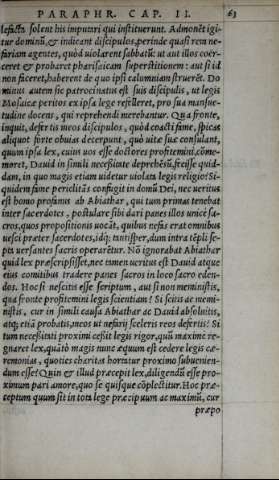 PARAPHR. CAP. II. 63
lefacta solent his imputari qui instituerunt. Admonēt igi-
tur dominū, & indicant discipulos, perinde quasi rem ne-
fariam agentes, quòd uiolarent sabbatū: ut aut illos coër-
ceret & probaret pharisaicam superstitionem: aut si id
non faceret, haberent de quo ipsi calumniam struerēt. Do
minus autem sic patrocinatus est suis discipulis, ut legis
Mosaicæ peritos ex ipsa lege refelleret, pro sua mansue-
tudine docens, qui reprehendi merebantur. Qua fronte,
inquit, defertis meos discipulos, quòd coacti fame, spicas
aliquot forte obuias decerpunt, quò uitæ suæ consulant,
quum ipsa lex, cuius uos esse doctores profitemini, cōme-
moret, Dauid in simili necessitate deprehēsū, fecisse quid-
dam, in quo magis etiam uidetur uiolata legis religio? Si-
quidem fame periclitās confugit in domū Dei, nec ueritus
est homo profanus ab Abiathar, qui tum primas tenebat
inter sacerdotes, postulare sibi dari panes illos unicè sa-
cros, quos propositionis uocāt, quibus nefas erat omnibus
uesci præter sacerdotes, idq; tantisper, dum intra tēpli se-
pta uersantes sacris operarētur. Nō ignorabat Abiathar
quid lex præscripsisset, nec tamen ueritus est Dauid atque
eius comitibus tradere panes sacros in loco sacro eden-
dos. Hoc si nescitis esse scriptum, aut si non meministis,
qua fronte profitemini legis scientiam? Si scitis ac memi-
nistis, cur in simili causa Abiathar ac Dauid absoluitis,
atq; etiā probatis, meos ut nefarij sceleris reos defertis? Si
tum necessitati proximi cessit legis rigor, quū maximè re-
gnaret lex, quātò magis nunc æquum est cedere legis cæ-
remonias, quoties charitas hortatur proximo subuenien-
dum esse? Quin & illud præcepit lex, diligendū esse pro-
ximum pari amore, quo se quisque cōplectitur. Hoc præ-
ceptum quum sit in tota lege præcipuum ac maximū, cur
præpo